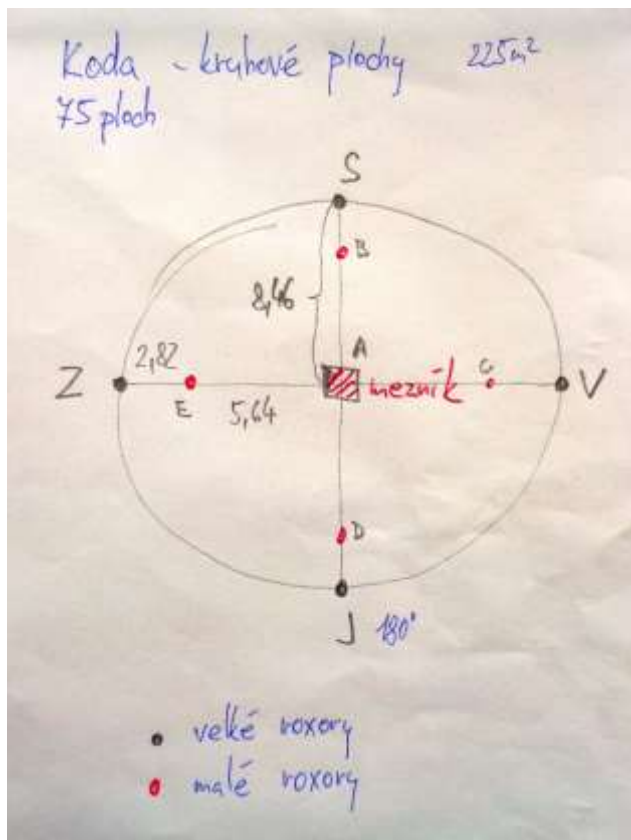 Koda - kruhové plochy 225m²
75 ploch
S
B
8,46
A
2,82
Z
mezník
C
V
E
5,64
D
J 180°
velké roxory
malé roxory